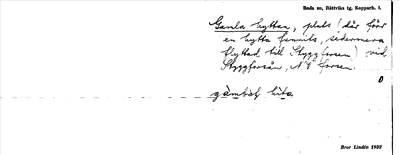 Boda sn, Rättviks tg, Kopparb. l.
Gamla hyttan, plats (där förr
en hytta funnits, sedermera
flyttad till Styggforsen) vid
Styggforsån, N
forsen.
0
Bror Lindén 1932